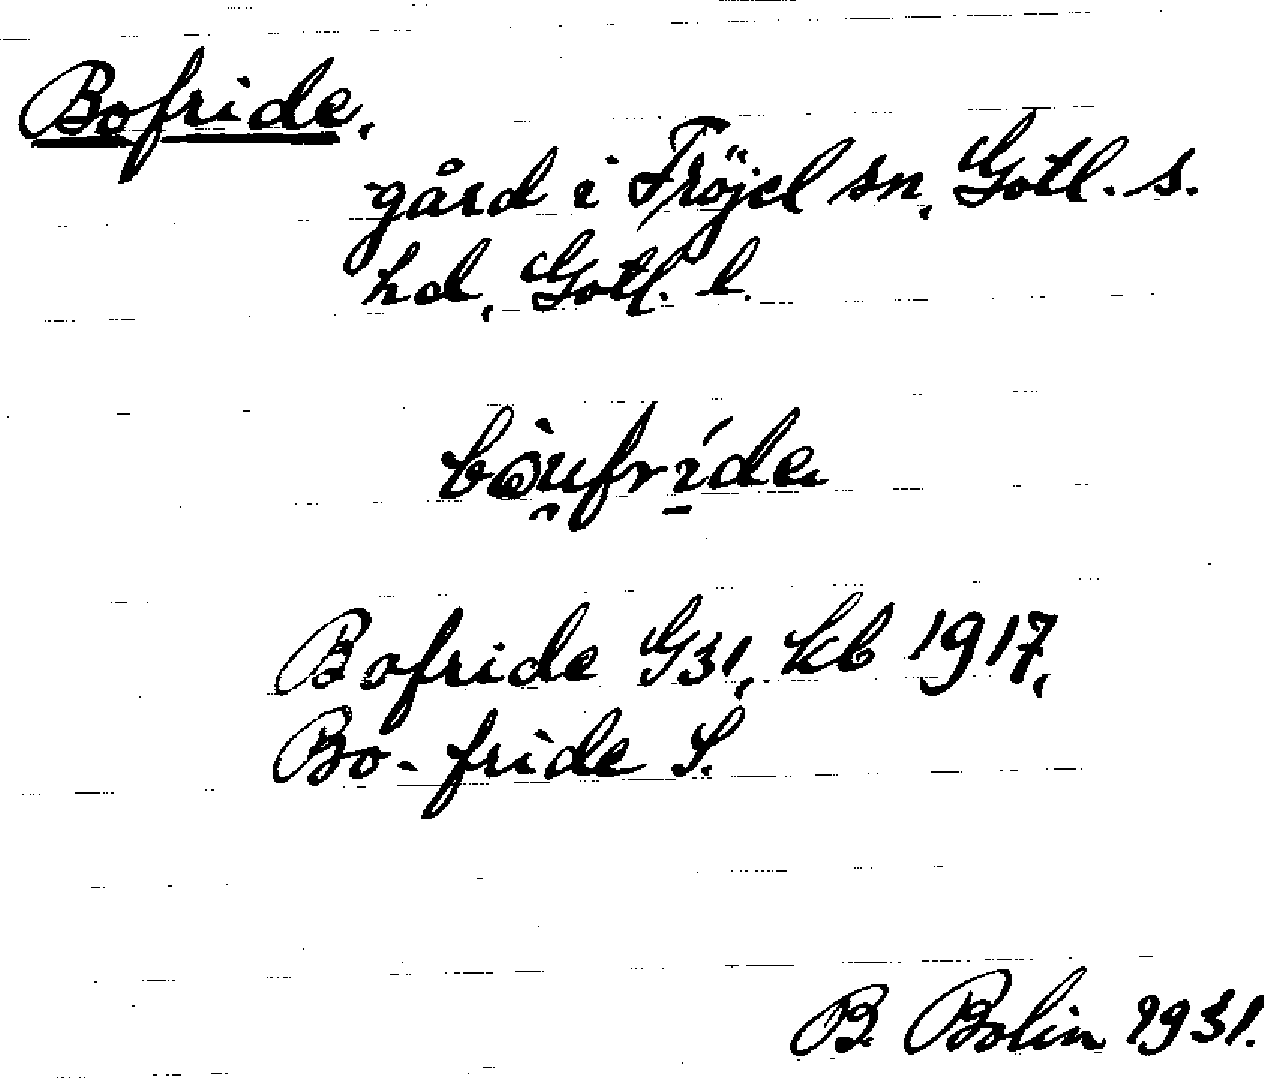 Bofride.
gård i Fröjel sn, Gotl. s.
hd, Gotl. l.
bòu̯frí̱de
Bofride G31, kb 1917,
Bo-fride S.
B. Bolin 1931.